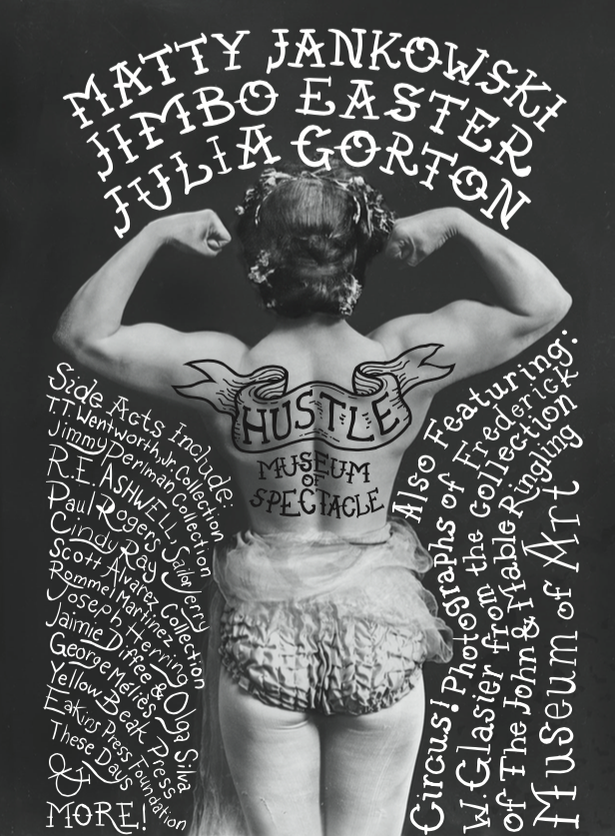 MATTY JANKOWSKI
JIMBO EASTER
JULIA GORTON
HUSTLE
MUSEUM
OF
SPECTACLE
Side Acts Include:
T.T. Wentworth, Jr. Collection
Jimmy Perlman Collection
R.E ASHWELL, Sailor Jerry
Paul Rogers
Cindy Ray
Scott Alvarez Collection
Rommel Martinez
Joseph Herring
Jaimie Diffee & Olga Silva
George Méliès
Yellow Beak Press
Eakins Press Foundation
These Days
&
MORE!
Also Featuring:
Circus! Photographs of Frederick
W. Glasier from the collection
of The John & Mable Ringling
Museum of Art